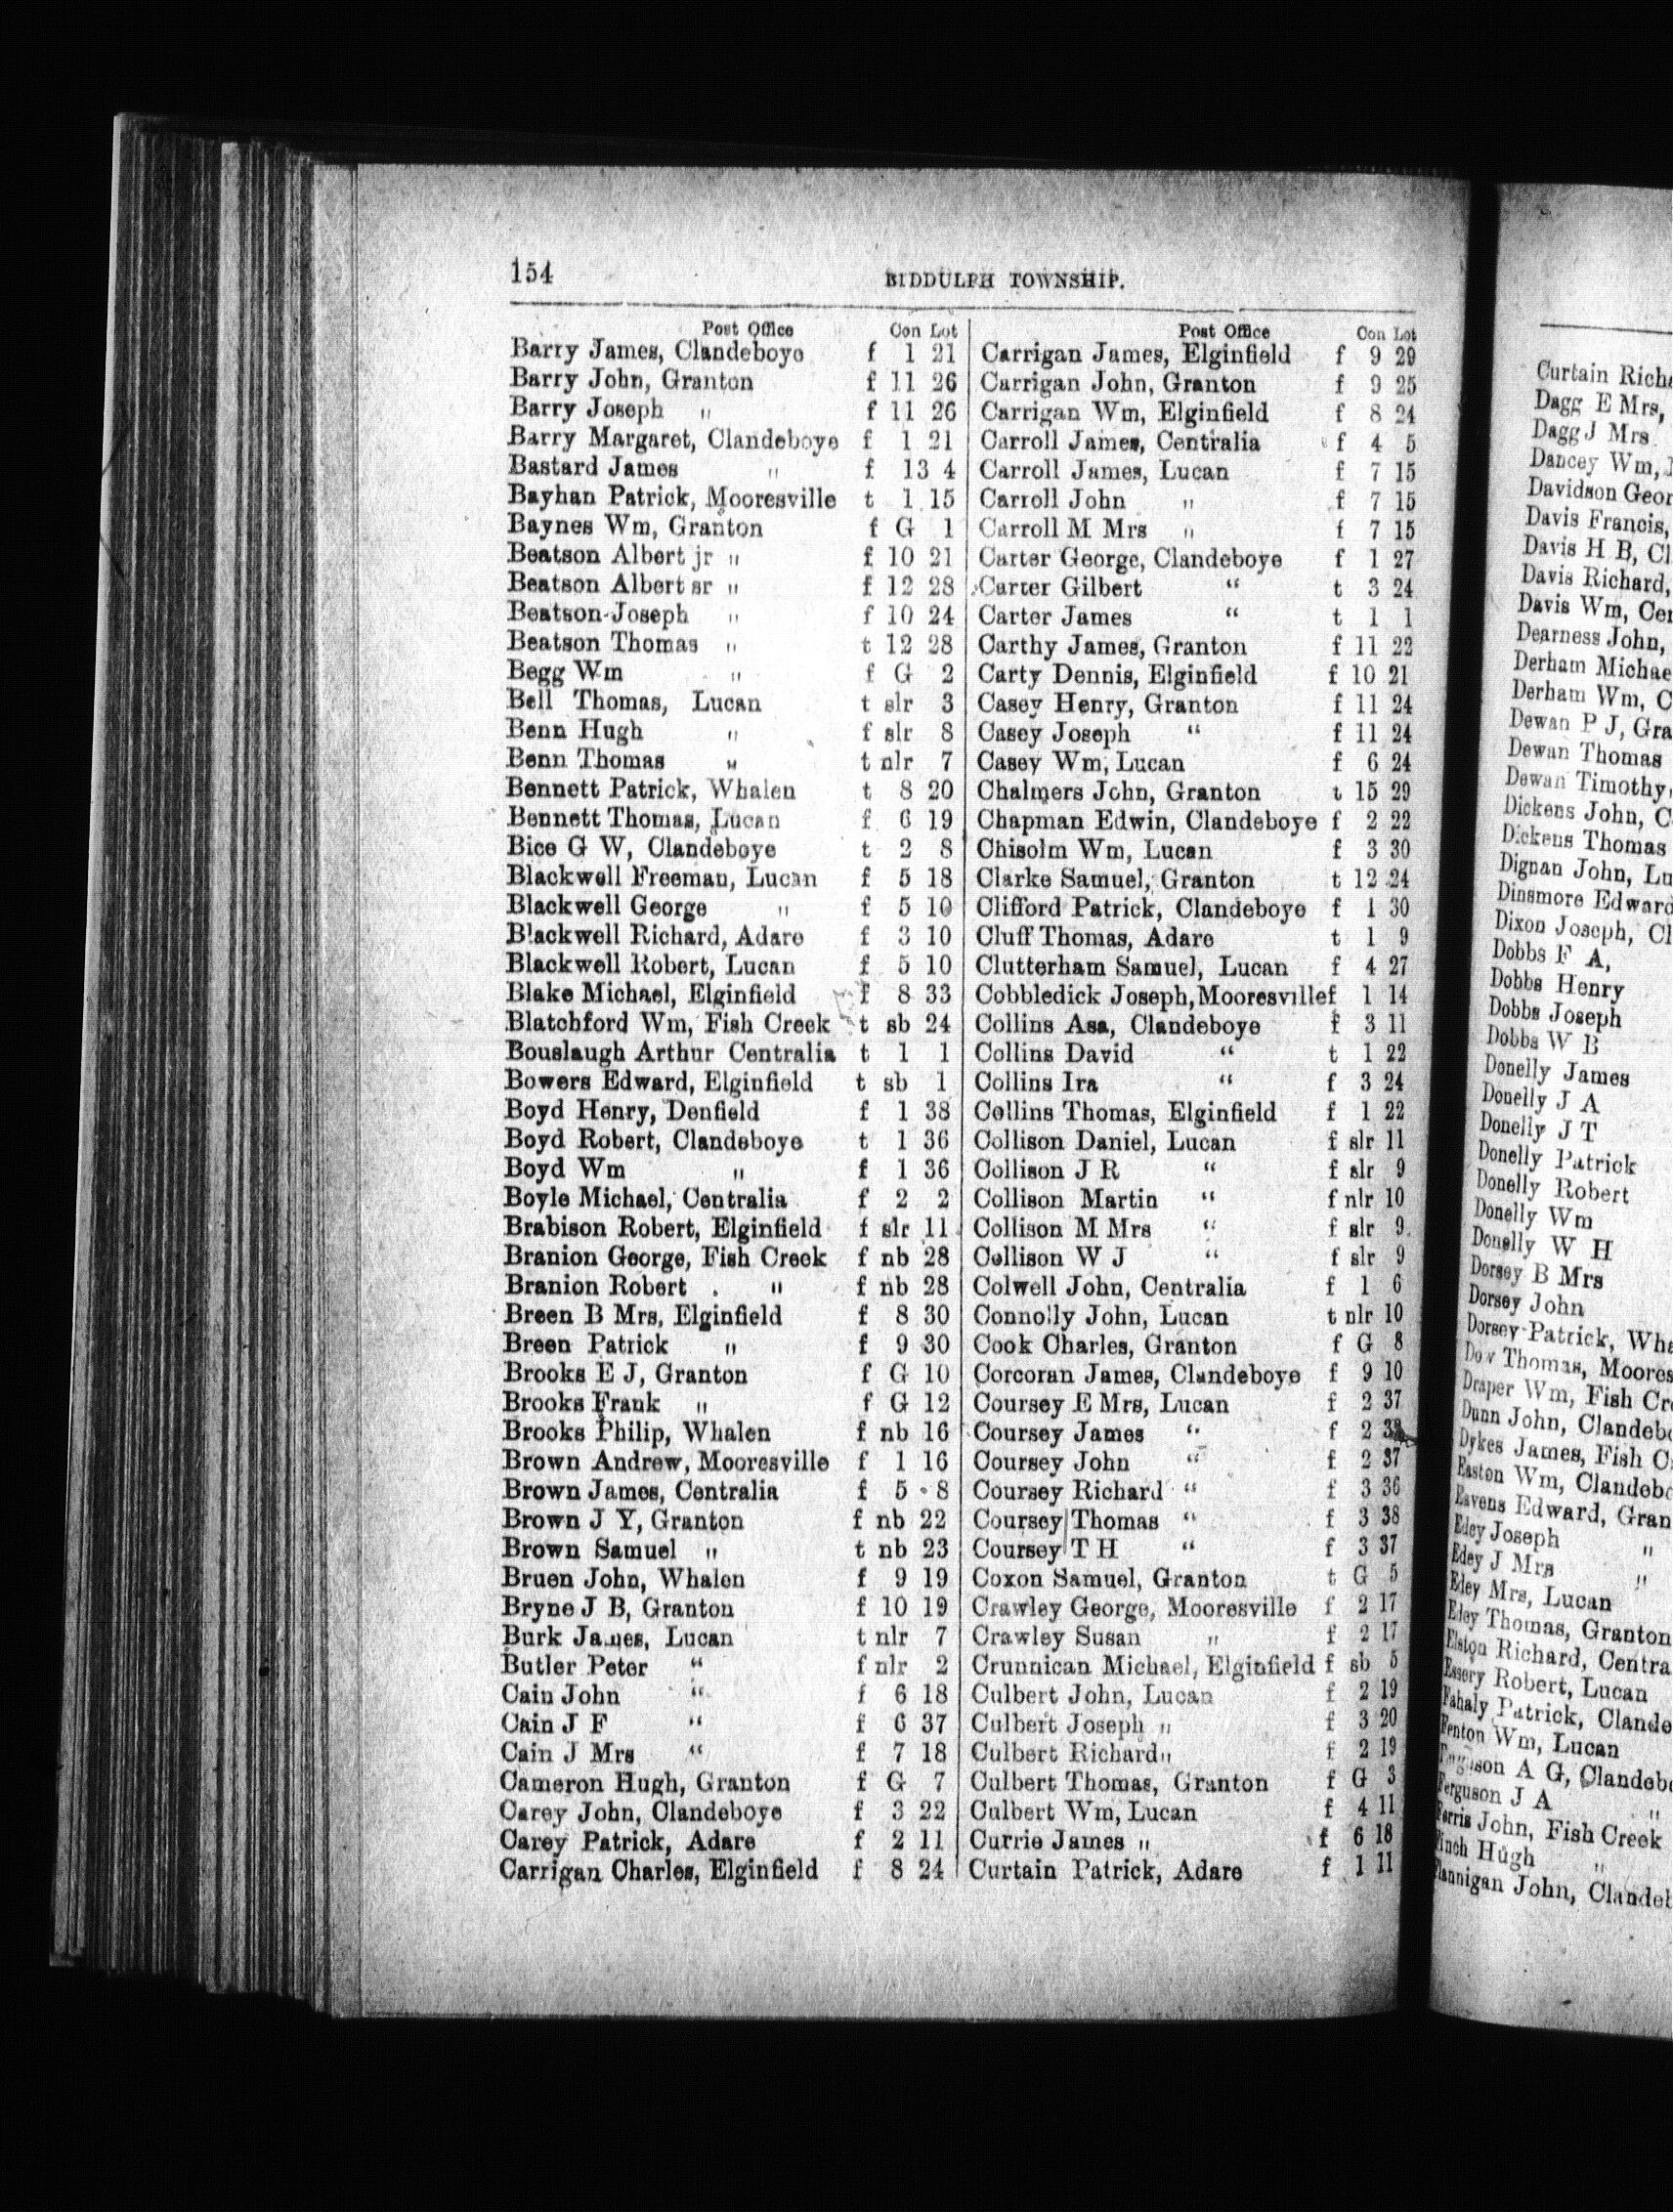 154
BIDDULPH TOWNSHIP.
Post Office Con Lot
Barry James, Clandeboye f 1 21
Barry John, Granton f 11 26
Barry Joseph " f 11 26
Barry Margaret, Clandeboye f 1 21
Bastard James " f 13 4
Bayhan Patrick, Mooresville t 1 15
Baynes Wm, Granton f G 1
Beatson Albert jr " f 10 21
Beatson Albert sr " f 12 28
Beatson Joseph " f 10 24
Beatson Thomas " t 12 28
Begg Wm " f G 2
Bell Thomas, Lucan t slr 3
Benn Hugh " f slr 8
Benn Thomas " t nlr 7
Bennett Patrick, Whalen t 8 20
Bennett Thomas, Lucan f 6 19
Bice G W, Clandeboye t 2 8
Blackwell Freeman, Lucan f 5 18
Blackwell George " f 5 10
Blackwell Richard, Adare f 3 10
Blackwell Robert, Lucan f 5 10
Blake Michael, Elginfield f 8 33
Blatchford Wm, Fish Creek t sb 24
Bouslaugh Arthur Centralia t 1 1
Bowers Edward, Elginfield t sb 1
Boyd Henry, Denfield f 1 38
Boyd Robert, Clandeboye t 1 36
Boyd Wm " f 1 36
Boyle Michael, Centralia f 2 2
Brabison Robert, Elginfield f slr 11
Branion George, Fish Creek f nb 28
Branion Robert " f nb 28
Breen B Mrs, Elginfield f 8 30
Breen Patrick " f 9 30
Brooks E J, Granton f G 10
Brooks Frank " f G 12
Brooks Philip, Whalen f nb 16
Brown Andrew, Mooresville f 1 16
Brown James, Centralia f 5 8
Brown J Y, Granton f nb 22
Brown Samuel " t nb 23
Bruen John, Whalen f 9 19
Bryne J B, Granton f 10 19
Burk James, Lucan t nlr 7
Butler Peter " f nlr 2
Cain John " f 6 18
Cain J F " f 6 37
Cain J Mrs " f 7 18
Cameron Hugh, Granton f G 7
Carey John, Clandeboye f 3 22
Carey Patrick, Adare f 2 11
Carrigan Charles, Elginfield f 8 24
Post Office Con Lot
Carrigan James, Elginfield f 9 29
Carrigan John, Granton f 9 25
Carrigan Wm, Elginfield f 8 24
Carroll James, Centralia f 4 5
Carroll James, Lucan f 7 15
Carroll John " f 7 15
Carroll M Mrs " f 7 15
Carter George, Clandeboye f 1 27
Carter Gilbert " t 3 24
Carter James " t 1 1
Carthy James, Granton f 11 22
Carty Dennis, Elginfield f 10 21
Casey Henry, Granton f 11 24
Casey Joseph " f 11 24
Casey Wm, Lucan f 6 24
Chalmers John, Granton t 15 29
Chapman Edwin, Clandeboye f 2 22
Chisolm Wm, Lucan f 3 30
Clarke Samuel, Granton t 12 24
Clifford Patrick, Clandeboye f 1 30
Cluff Thomas, Adare t 1 9
Clutterham Samuel, Lucan f 4 27
Cobbledick Joseph, Mooresville f 1 14
Collins Asa, Clandeboye f 3 11
Collins David " t 1 22
Collins Ira " f 3 24
Collins Thomas, Elginfield f 1 22
Collison Daniel, Lucan f slr 11
Collison J R " f slr 9
Collison Martin " f nlr 10
Collison M Mrs " f slr 9
Collison W J " f slr 9
Colwell John, Centralia f 1 6
Connolly John, Lucan t nlr 10
Cook Charles, Granton f G 8
Corcoran James, Clandeboye f 9 10
Coursey E Mrs, Lucan f 2 37
Coursey James " f 2
Coursey John " f 2 37
Coursey Richard " f 3 36
Coursey Thomas " f 3 38
Coursey T H " f 3 37
Coxon Samuel, Granton t G 5
Crawley George, Mooresville f 2 17
Crawley Susan " f 2 17
Crunnican Michael, Elginfield f sb 5
Culbert John, Lucan f 2 19
Culbert Joseph " f 3 20
Culbert Richard " f 2 19
Culbert Thomas, Granton f G 3
Culbert Wm, Lucan f 4 11
Currie James " f 6 18
Curtain Patrick, Adare f 1 11
Curtain
Dagg E Mrs,
Dagg J Mrs
Dancey Wm,
Davidson
Davis Francis,
Davis H B,
Davis Richard,
Davis Wm,
Dearness John,
Derham
Derham Wm,
Dewan P J,
Dewan Thomas
Dewan Timothy,
Dickens John,
Dickens Thomas
Dignan John,
Dinsmore Edward
Dixon Joseph,
Dobbs F A,
Dobbs Henry
Dobbs Joseph
Dobbs W B
Donelly James
Donelly J A
Donelly J T
Donelly Patrick
Donelly Robert
Donelly Wm
Donelly W H
Dorsey B Mrs
Dorsey John
Dorsey Patrick,
Dow Thomas,
Draper Wm, Fish
Dunn John,
Dykes James, Fish
Easton Wm,
Eavens Edward,
Edey Joseph "
Edey J Mrs "
Edey Mrs, Lucan
Edey Thomas, Granton
Elston Richard,
Essery Robert, Lucan
Fahaly Patrick,
Fenton Wm, Lucan
A G,
Ferguson J A "
Ferris John, Fish Creek
Finch Hugh "
Flannigan John,